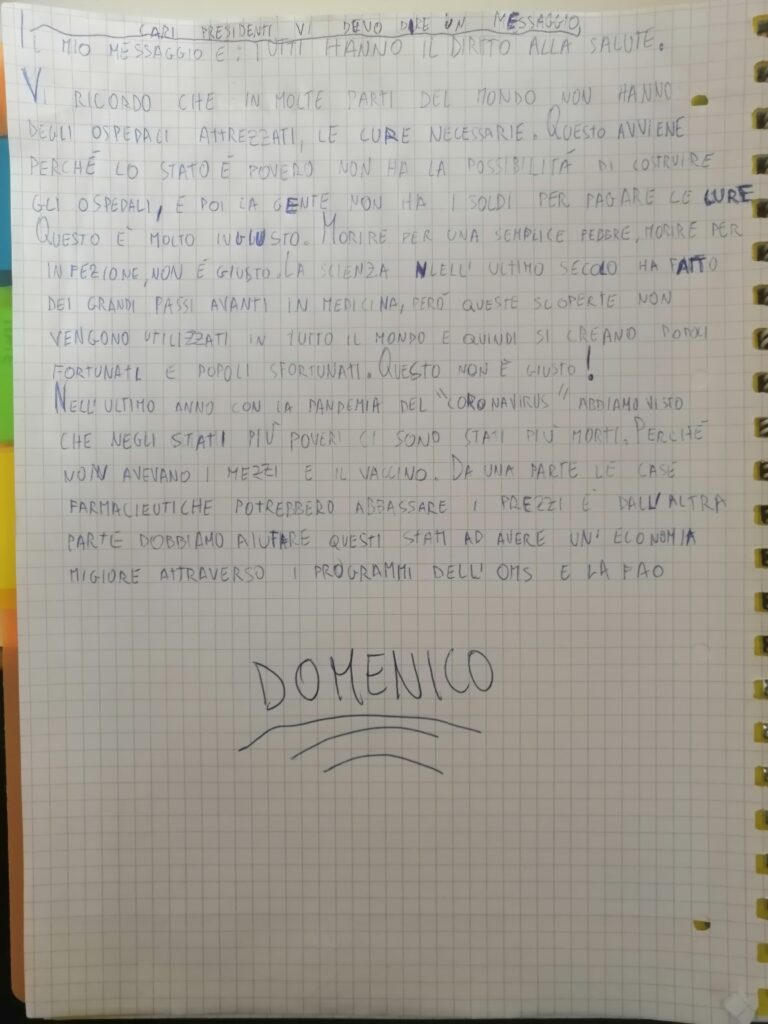 CARI PRESIDENTI VI DEVO DIRE UN MESSAGGIO
IL MIO MESSAGGIO È: TUTTI HANNO IL DIRITO ALLA SALUTE.
VI RICORDO CHE IN MOLTE PARTI DEL MONDO NON HANNO
DEGLI OSPEDALI ATTREZZATI, LE CURE NECESSARIE. QUESTO AVVIENE
PERCHÉ LO STATO É POVERO NON HA LA POSSIBILITÁ DI COSTRUIRE
GLI OSPEDALI, E POI LA GENTE NON HA I SOLDI PER PAGARE LE CURE
QUESTO E' MOLTO INGIUSTO. MORIRE PER UNA SEMPLICE FEBBRE, MORIRE PER
INFEZIONE, NON É GIUSTO. LA SCIENZA NLELL' ULTIMO SECOLO HA FATTO
DEI GRANDI PASSI AVANTI IN MEDICINA, PERÓ QUESTE SCOPERTE NON
VENGONO UTILIZZATI IN TUTTO IL MONDO E QUINDI SI CREANO POPOLI
FORTUNATI E POPOLI SFORTUNATI. QUESTO NON É GIUSTO!
NELL'ULTIMO ANNO CON LA PANDEMIA DEL "CORONAVIRUS" ABBIAMO VISTO
CHE NEGLI STATI PIÚ POVERI CI SONO STATI PIÚ MORTI. PERCHÉ
NON AVEVANO I MEZZI E IL VACCINO. DA UNA PARTE LE CASE
FARMACIEUTICHE POTREBBERO ABBASSARE I PREZZI E DALL'ALTRA
PARTE DOBBIAMO AIUTARE QUESTI STATI AD AVERE UN' ECONOMIA
MIGIORE ATTRAVERSO I PROGRAMMI DELL' OMS E LA FAO
DOMENICO